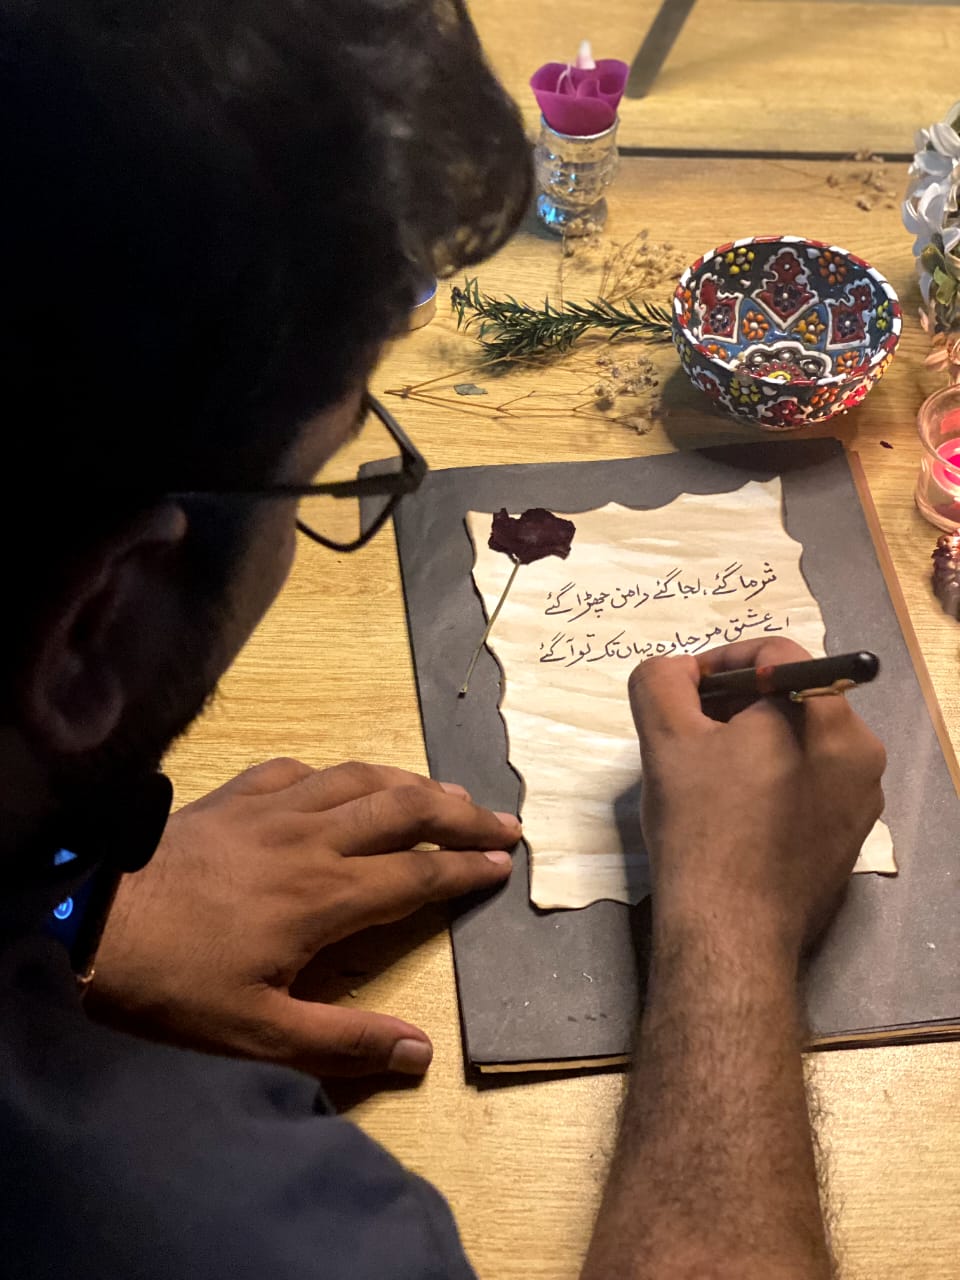 شرما گئے، لجا گئے دامن چھڑا گئے
اے عشق مرحبا وہ یہاں تک تو آ گئے